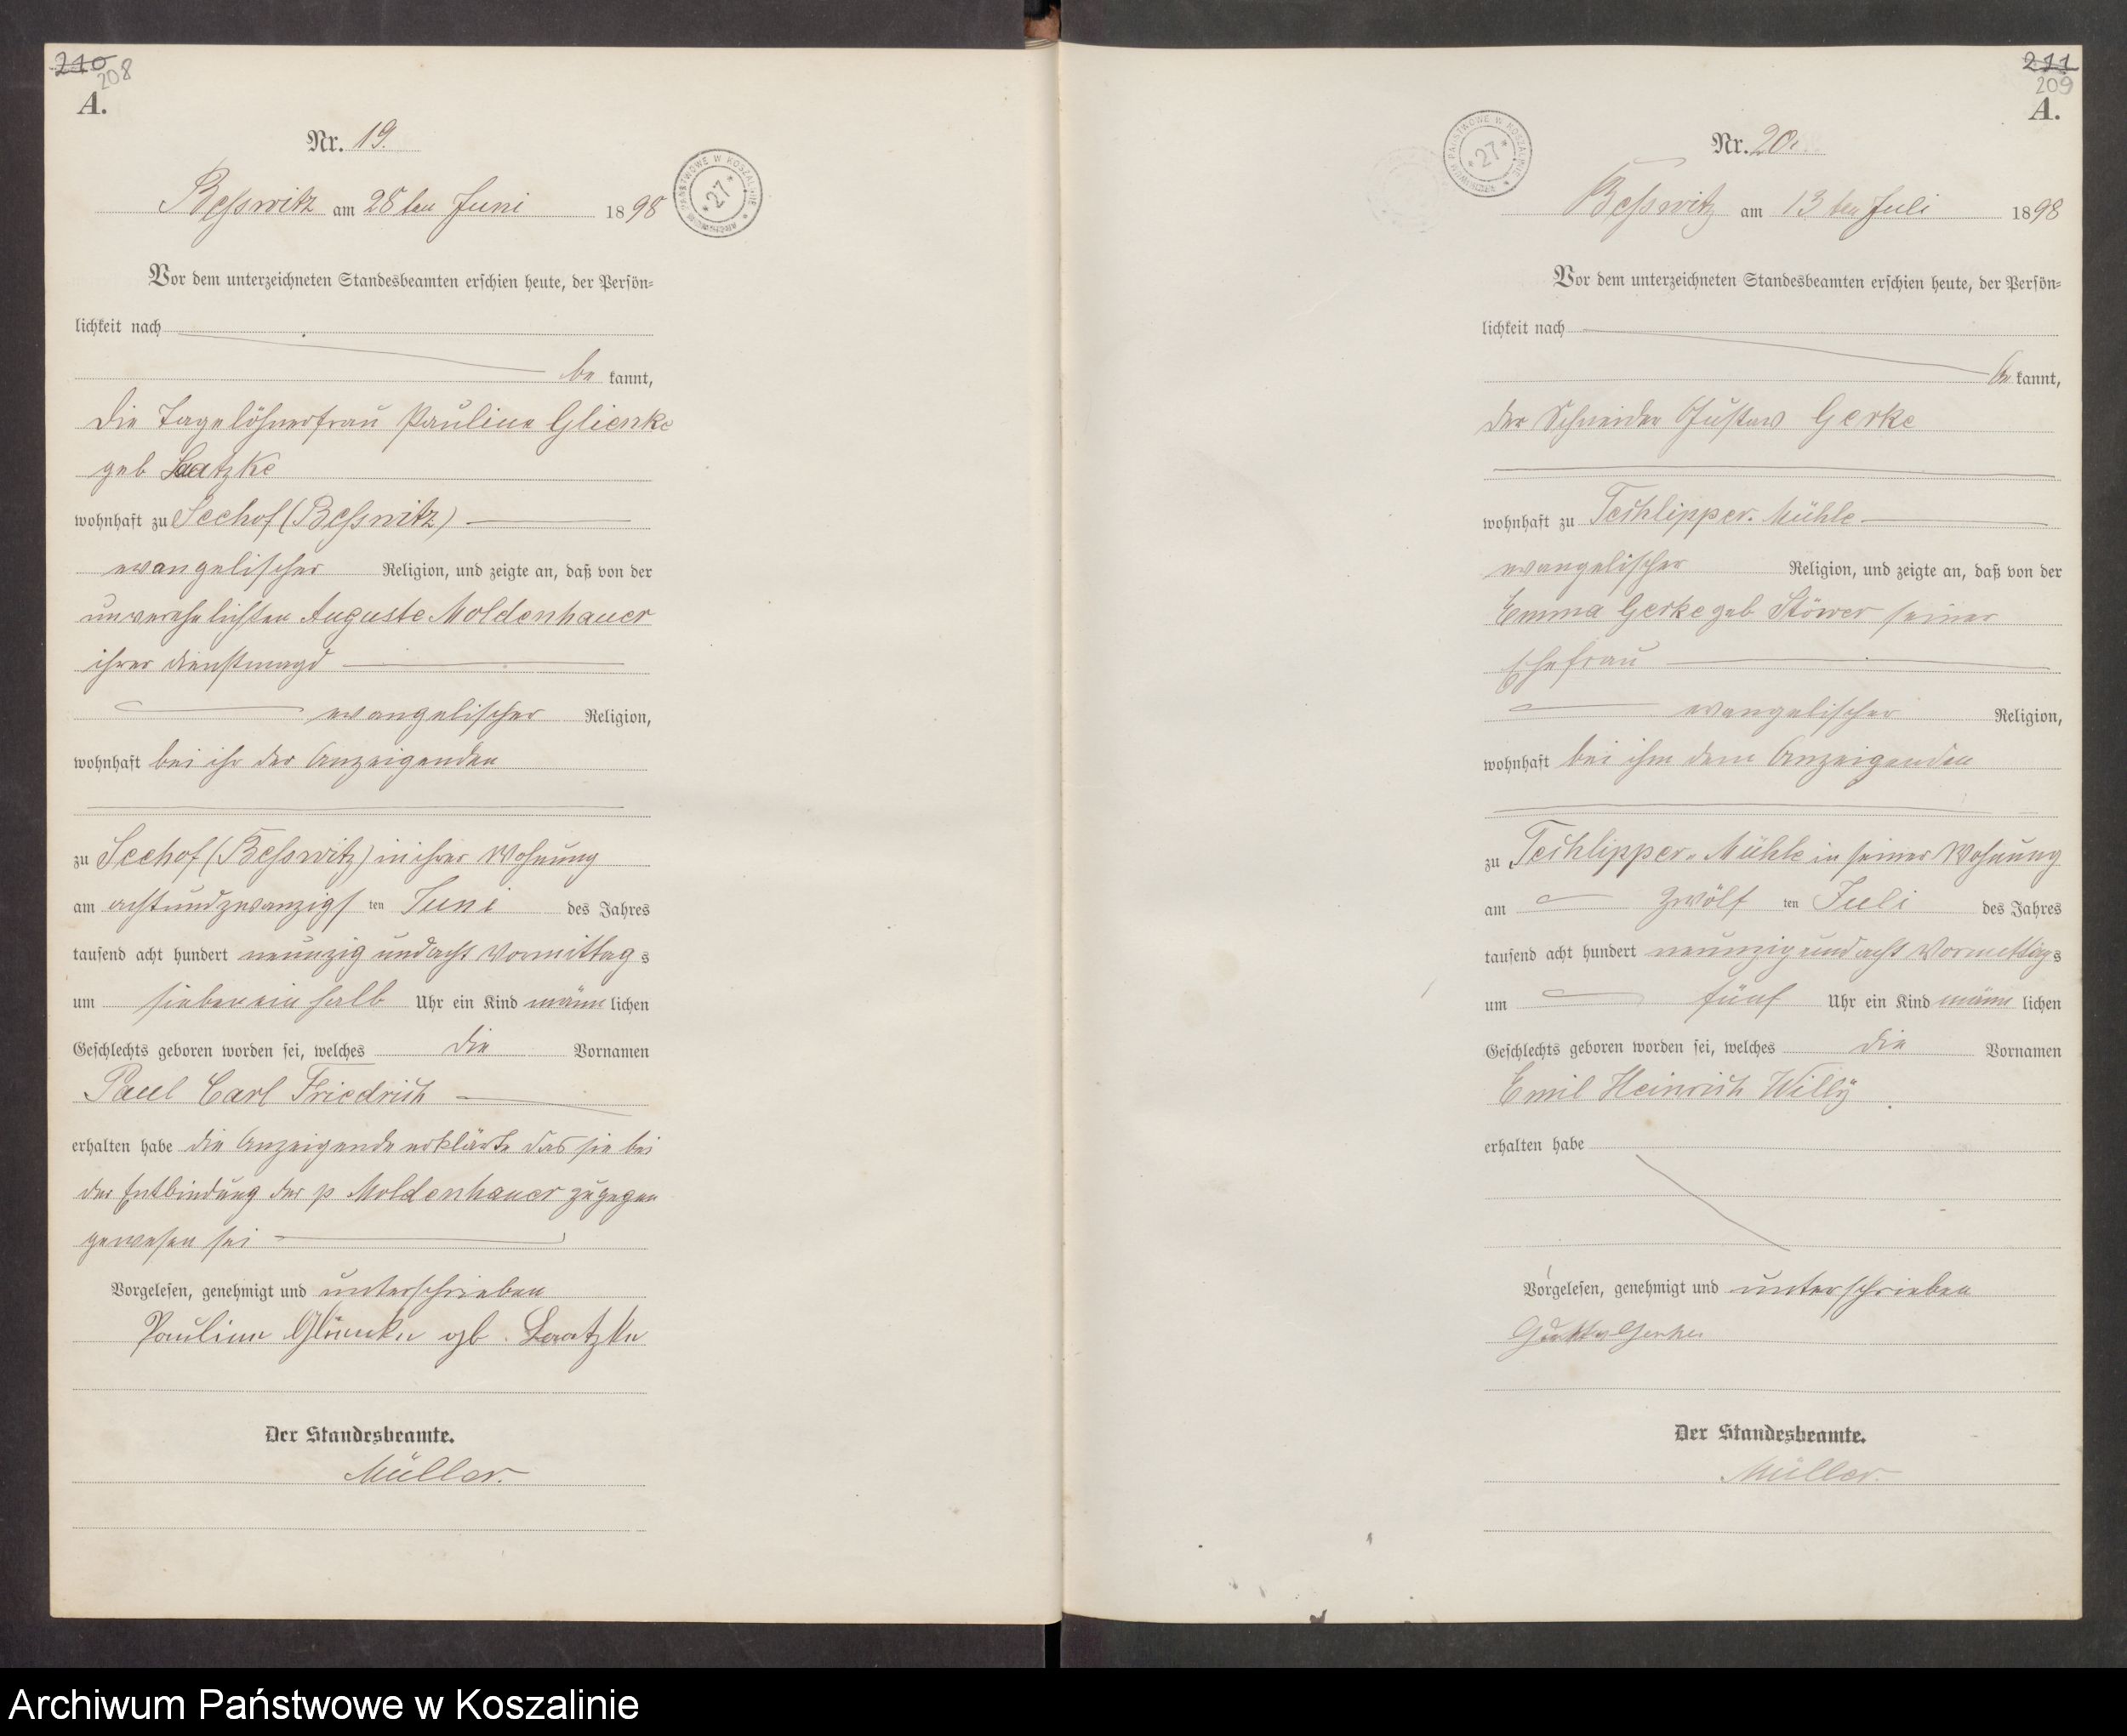 210
208
A.
Nr. 19.
Beßwitz am 28ten Juni 1898
ARCHIWUM PAŃSTWOWE W KOSZALINIE * 27 *
Vor dem unterzeichneten Standesbeamten erschien heute, der Persön-
lichkeit nach
be kannt,
die Tagelöhnerfrau Pauline Glienke
geb Laatzke
wohnhaft zu Seehof (Beßwitz)
evangelischer Religion, und zeigte an, daß von der
unverehelichten Auguste Moldenhauer
ihrer Dienstmagd
evangelischer Religion,
wohnhaft bei ihr der Anzeigenden
zu Seehof (Beßwitz) in ihrer Wohnung
am achtundzwanzigs ten Juni des Jahres
tausend acht hundert neunzig und acht Vormittag s
um sieben ein halb Uhr ein Kind männ lichen
Geschlechts geboren worden sei, welches die Vornamen
Paul Carl Friedrich
erhalten habe die Anzeigende erklärte das sie bei
der Entbindung der p Moldenhauer zugegen
gewesen sei
Vorgelesen, genehmigt und unterschrieben
Pauline Glienke geb. Laatzke
Der Standesbeamte.
Müller.
211
209
A.
Nr. 20.
ARCHIWUM PAŃSTWOWE W KOSZALINIE * 27 *
Beßwitz am 13ten Juli 1898
Vor dem unterzeichneten Standesbeamten erschien heute, der Persön-
lichkeit nach
be kannt,
der Schneider Gustav Gerke
wohnhaft zu Techlipper-Mühle
evangelischer Religion, und zeigte an, daß von der
Emma Gerke geb Stöwer seiner
Ehefrau
evangelischer Religion,
wohnhaft bei ihm dem Anzeigenden
zu Techlipper-Mühle in seiner Wohnung
am zwölf ten Juli des Jahres
tausend acht hundert neunzig und acht Vormittag s
um fünf Uhr ein Kind männ lichen
Geschlechts geboren worden sei, welches die Vornamen
Emil Heinrich Willy
erhalten habe
Vorgelesen, genehmigt und unterschrieben
Gustav Gerke
Der Standesbeamte.
Müller.
Archiwum Państwowe w Koszalinie